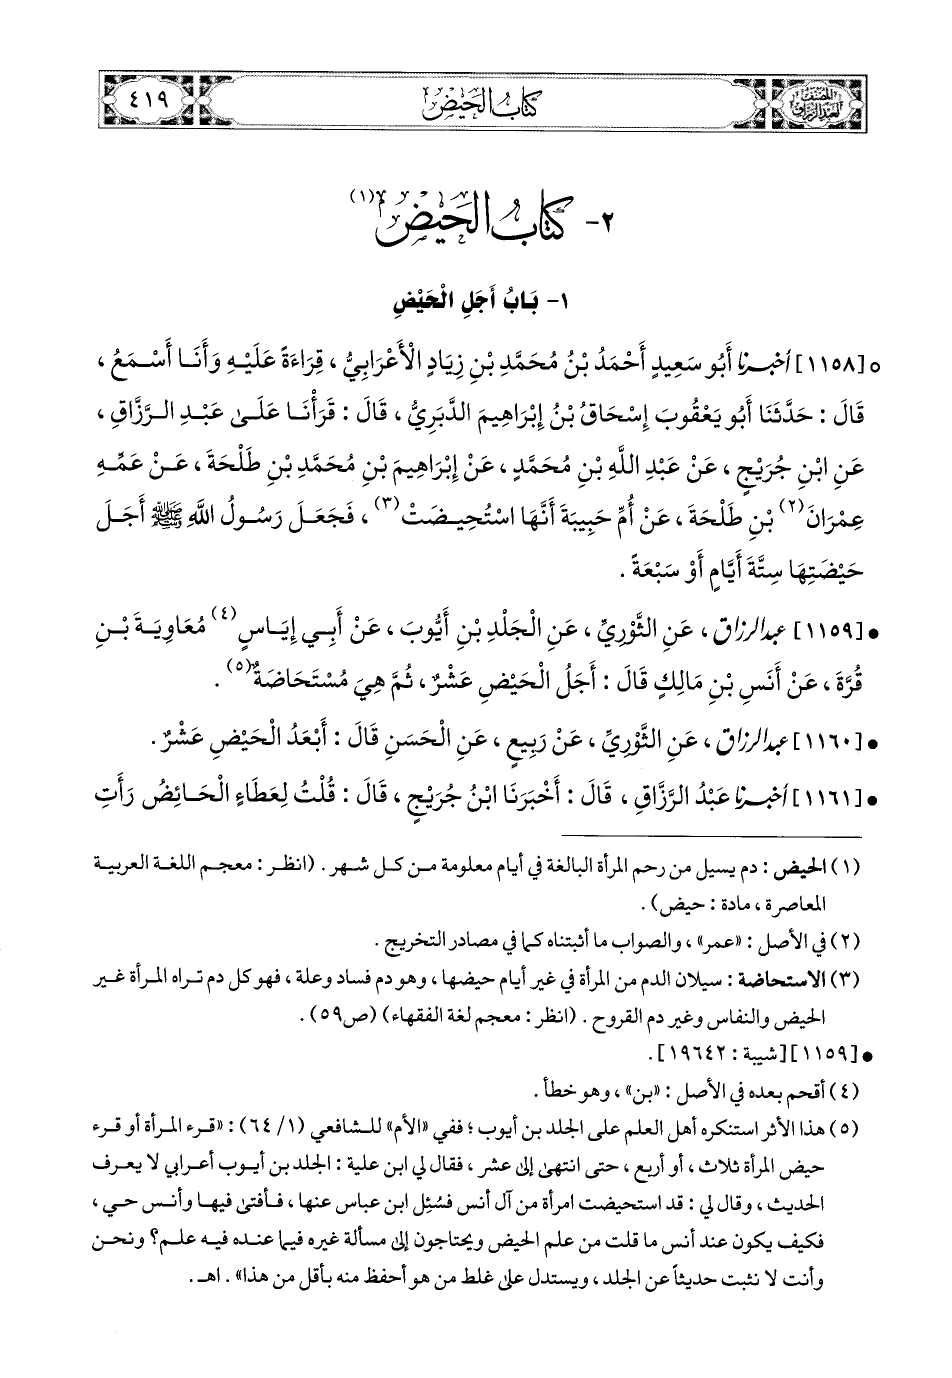 المصنف لعبد الرزاق
كتاب الحيض
٤١٩
٢- كِتَابُ الحَيْضِ (١)
١- بَابُ أَجَلِ الْحَيْضِ
٥ [١١٥٨] أخبرنا أَبُو سَعِيدٍ أَحْمَدُ بْنُ مُحَمَّدِ بْنِ زِيَادٍ الْأَعْرَابِيُّ ، قِرَاءَةً عَلَيْهِ وَأَنَا أَسْمَعُ ،
قَالَ : حَدَّثَنَا أَبُو يَعْقُوبَ إِسْحَاقُ بْنُ إِبْرَاهِيمَ الدَّبَرِيُّ ، قَالَ : قَرَأْنَا عَلَىٰ عَبْدِ الرَّزَّاقِ ،
عَنِ ابْنِ جُرَيْجٍ ، عَنْ عَبْدِ اللَّهِ بْنِ مُحَمَّدٍ ، عَنْ إِبْرَاهِيمَ بْنِ مُحَمَّدِ بْنِ طَلْحَةَ ، عَنْ عَمِّهِ
عِمْرَانَ (٢) بْنِ طَلْحَةَ ، عَنْ أُمِّ حَبِيبَةَ أَنَّهَا اسْتُحِيضَتْ (٣) ، فَجَعَلَ رَسُولُ اللَّهِ ﷺ أَجَلَ
حَيْضَتِهَا سِتَّةَ أَيَّامٍ أَوْ سَبْعَةً .
• [١١٥٩] عبد الرزاق ، عَنِ الثَّوْرِيِّ ، عَنِ الْجَلْدِ بْنِ أَيُّوبَ ، عَنْ أَبِي إِيَاسٍ (٤) مُعَاوِيَةَ بْنِ
قُرَّةَ ، عَنْ أَنَسِ بْنِ مَالِكٍ قَالَ : أَجَلُ الْحَيْضِ عَشْرٌ ، ثُمَّ هِيَ مُسْتَحَاضَةٌ (٥) .
• [١١٦٠] عبد الرزاق ، عَنِ الثَّوْرِيِّ ، عَنْ رَبِيعٍ ، عَنِ الْحَسَنِ قَالَ : أَبْعَدُ الْحَيْضِ عَشْرٌ .
• [١١٦١] أخبرنا عَبْدُ الرَّزَّاقِ ، قَالَ : أَخْبَرَنَا ابْنُ جُرَيْجٍ ، قَالَ : قُلْتُ لِعَطَاءٍ الْحَائِضُ رَأَتِ
(١) الحيض : دم يسيل من رحم المرأة البالغة في أيام معلومة من كل شهر . (انظر : معجم اللغة العربية
المعاصرة ، مادة : حيض) .
(٢) في الأصل : «عمر» ، والصواب ما أثبتناه كما في مصادر التخريج .
(٣) الاستحاضة : سيلان الدم من المرأة في غير أيام حيضها ، وهو دم فساد وعلة ، فهو كل دم تراه المرأة غير
الحيض والنفاس وغير دم القروح . (انظر : معجم لغة الفقهاء) (ص٥٩) .
• [١١٥٩] [شيبة : ١٩٦٤٢] .
(٤) أقحم بعده في الأصل : «بن» ، وهو خطأ .
(٥) هذا الأثر استنكره أهل العلم على الجلد بن أيوب ؛ ففي «الأم» للشافعي (١/ ٦٤) : «قرء المرأة أو قرء
حيض المرأة ثلاث ، أو أربع ، حتى انتهى إلى عشر ، فقال لي ابن علية : الجلد بن أيوب أعرابي لا يعرف
الحديث ، وقال لي : قد استحيضت امرأة من آل أنس فسُئِل ابن عباس عنها ، فأفتى فيها وأنس حي ،
فكيف يكون عند أنس ما قلت من علم الحيض ويحتاجون إلى مسألة غيره فيما عنده فيه علم؟ ونحن
وأنت لا نثبت حديثاً عن الجلد ، ويستدل على غلط من هو أحفظ منه بأقل من هذا» . اهـ .